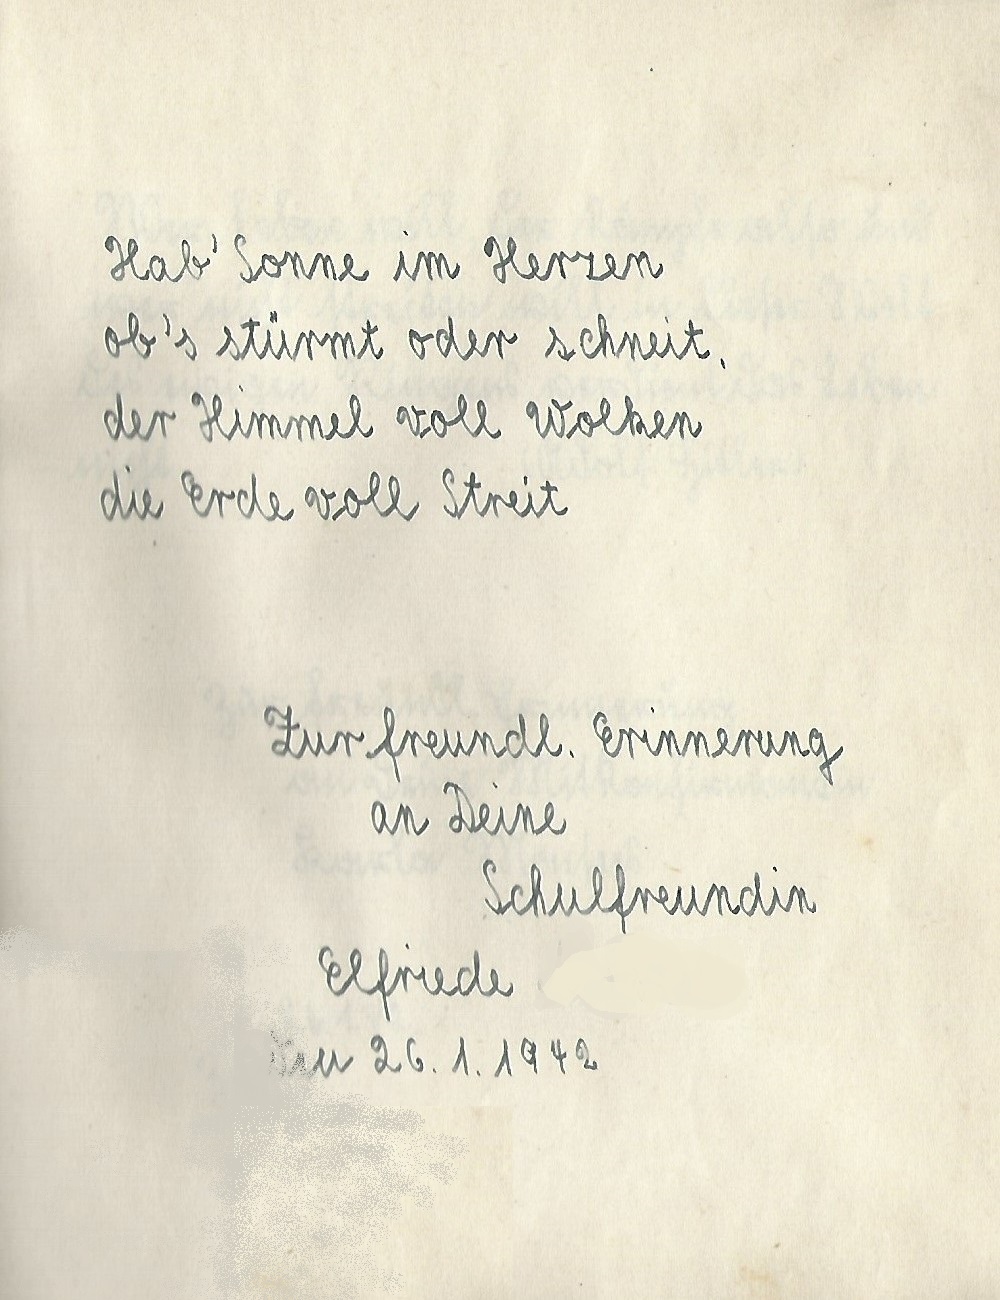 Hab' Sonne im Herzen
ob's stürmt oder schneit,
der Himmel voll Wolken
die Erde voll Streit
Zur freundl. Erinnerung
an Deine
Schulfreundin
Elfriede
26.1.1942